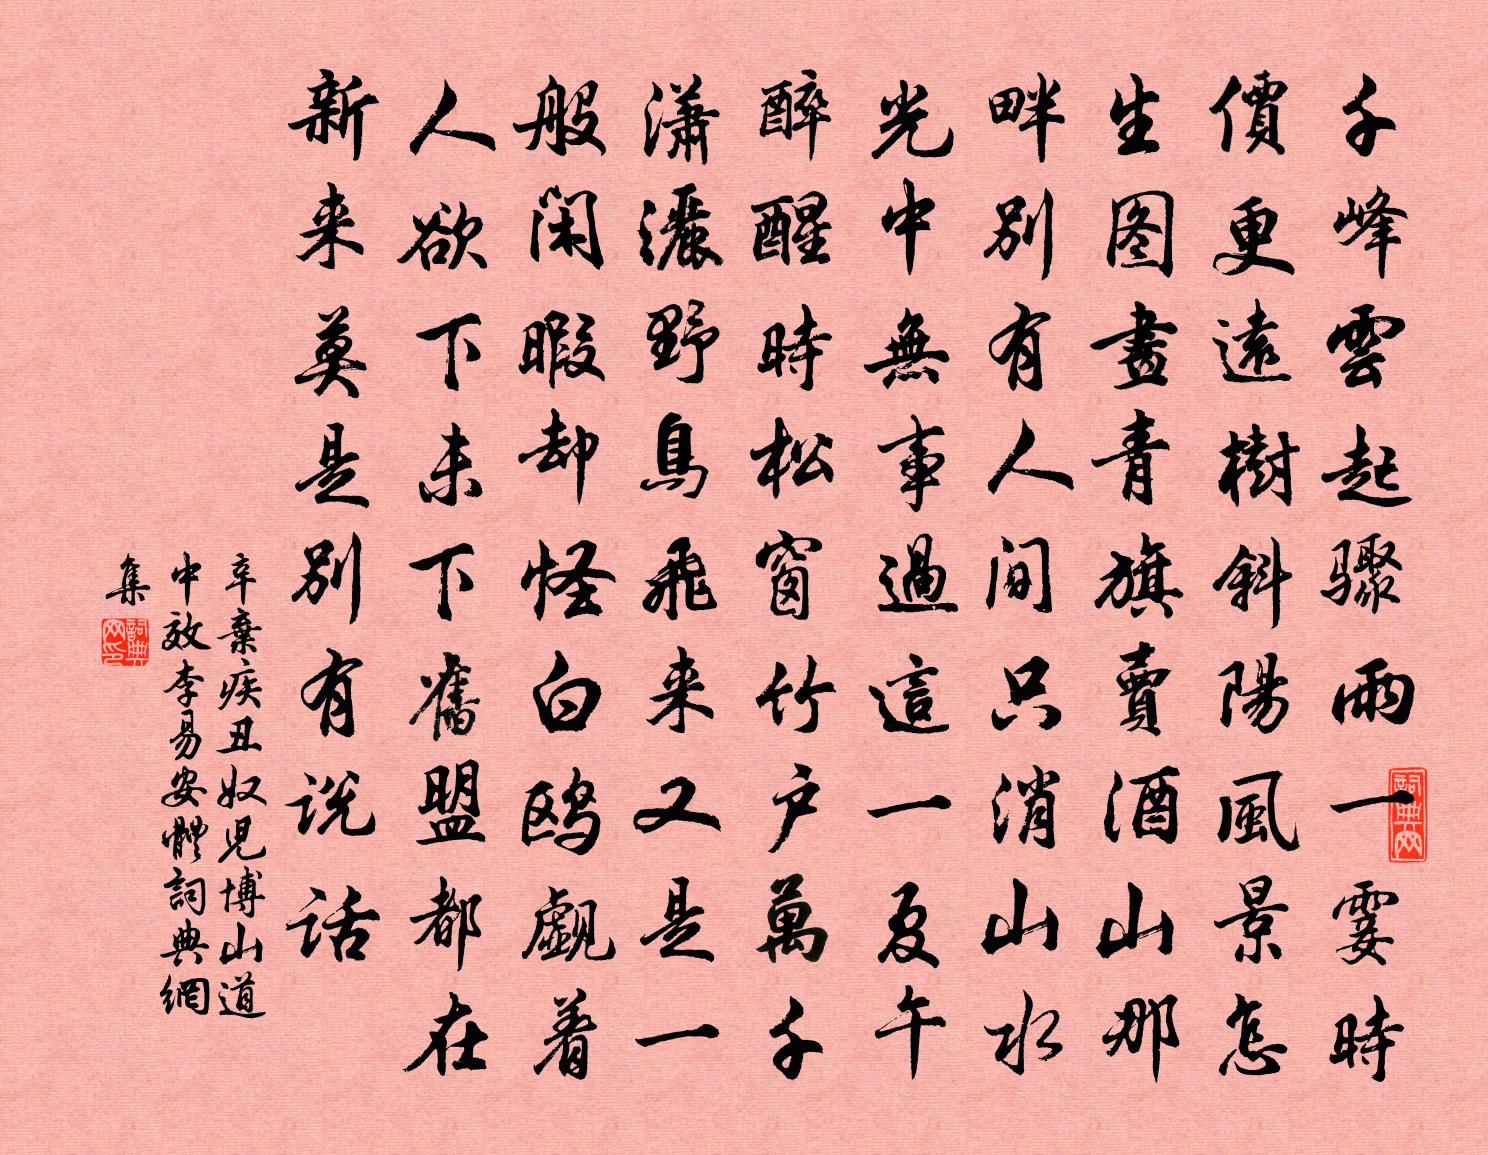 千峰雲起驟雨一霎時
價更遠樹斜陽風景怎
生图畫青旗賣酒山那
畔別有人间只消山水
光中無事過這一夏午
醉醒時松窗竹户萬千
瀟灑野鳥飛来又是一
般闲暇却怪白鸥覷着
人欲下未下舊盟都在
新来莫是別有说话
辛棄疾丑奴児博山道
中效李易安體詞典網
集
詞典网
詞典网印